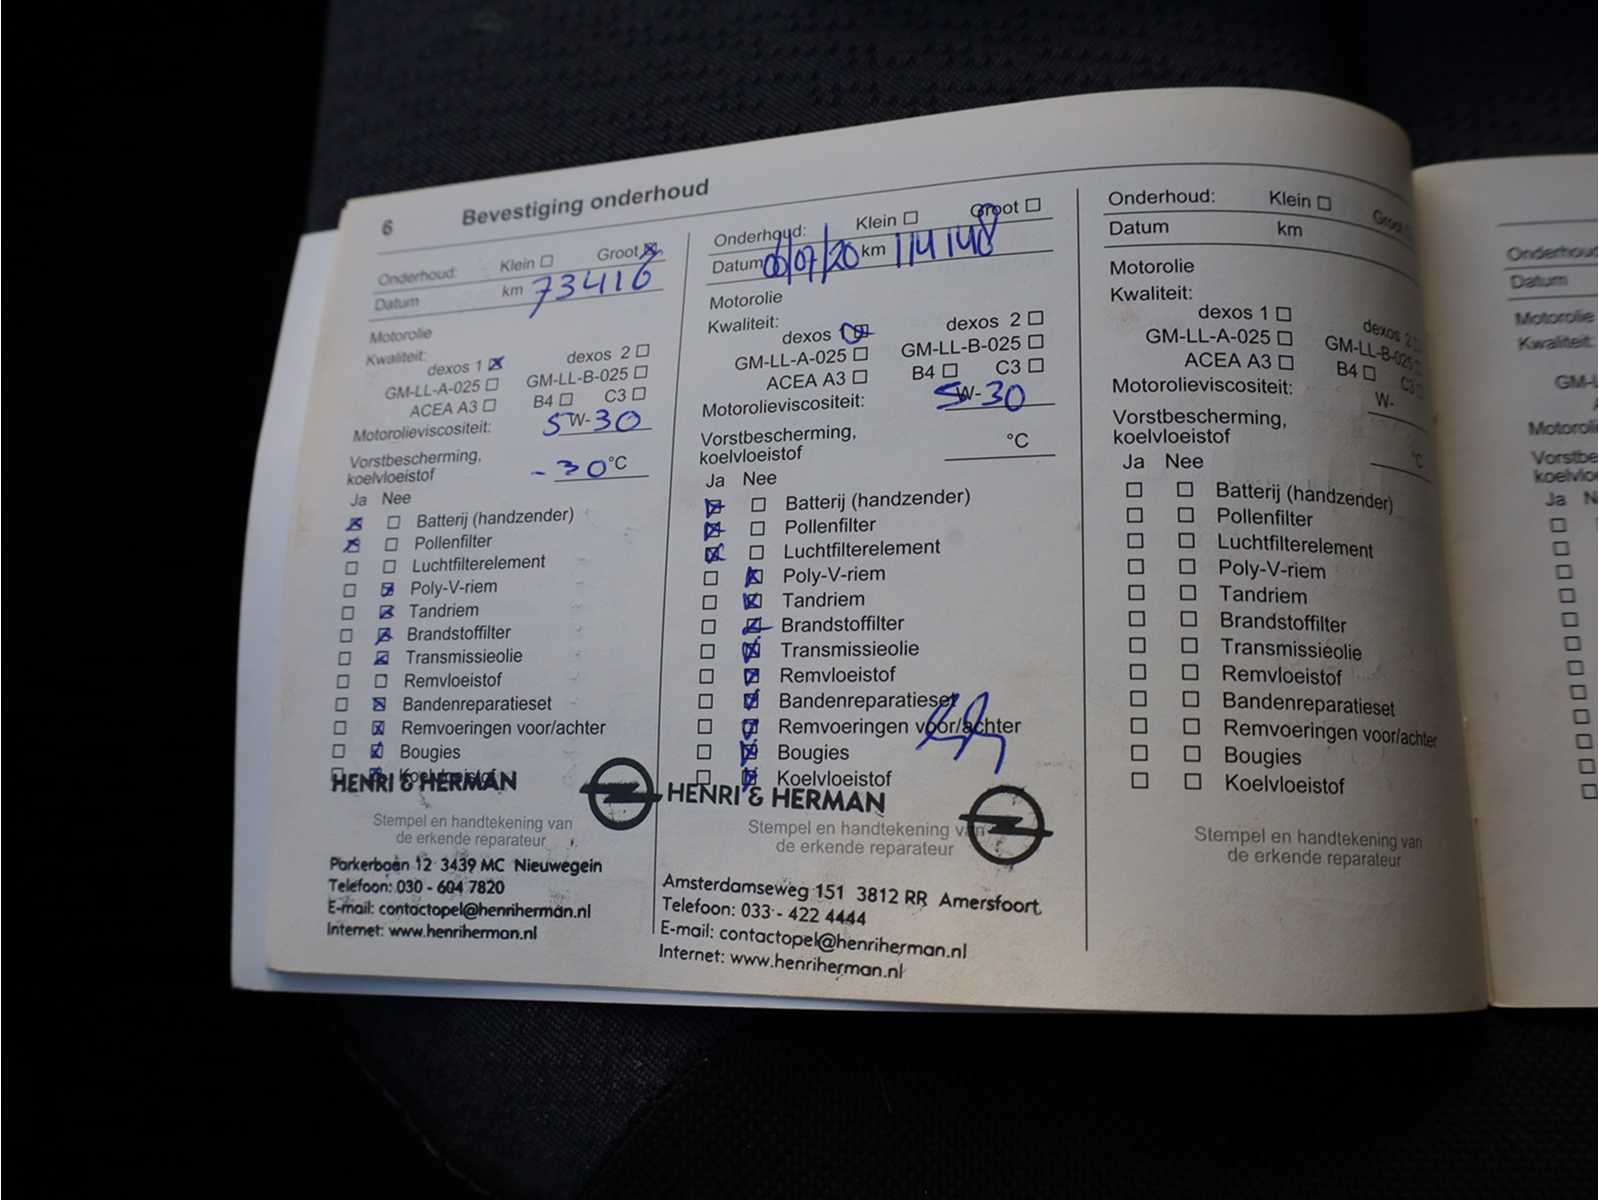 6 Bevestiging onderhoud
Onderhoud: Klein Groot
Datum km 73416
Motorolie
Kwaliteit:
dexos 1 dexos 2
GM-LL-A-025 GM-LL-B-025
ACEA A3 B4 C3
Motorolieviscositeit: 5 W- 30
Vorstbescherming,
koelvloeistof -30 °C
Ja Nee
Batterij (handzender)
Pollenfilter
Luchtfilterelement
Poly-V-riem
Tandriem
Brandstoffilter
Transmissieolie
Remvloeistof
Bandenreparatieset
Remvoeringen voor/achter
Bougies
Koelvloeistof
HENRI & HERMAN
Stempel en handtekening van
de erkende reparateur
Parkerbaan 12 3439 MC Nieuwegein
Telefoon: 030 - 604 7820
E-mail: contactopel@henriherman.nl
Internet: www.henriherman.nl
Onderhoud: Klein Groot
Datum 06/07/20 km 114148
Motorolie
Kwaliteit:
dexos 1 dexos 2
GM-LL-A-025 GM-LL-B-025
ACEA A3 B4 C3
Motorolieviscositeit: 5W-30
Vorstbescherming,
koelvloeistof °C
Ja Nee
Batterij (handzender)
Pollenfilter
Luchtfilterelement
Poly-V-riem
Tandriem
Brandstoffilter
Transmissieolie
Remvloeistof
Bandenreparatieset
Remvoeringen voor/achter
Bougies
Koelvloeistof
HENRI & HERMAN
Stempel en handtekening van
de erkende reparateur
Amsterdamseweg 151 3812 RR Amersfoort
Telefoon: 033 - 422 4444
E-mail: contactopel@henriherman.nl
Internet: www.henriherman.nl
Onderhoud: Klein Groot
Datum km
Motorolie
Kwaliteit:
dexos 1 dexos 2
GM-LL-A-025 GM-LL-B-025
ACEA A3 B4 C3
Motorolieviscositeit: W-
Vorstbescherming,
koelvloeistof °C
Ja Nee
Batterij (handzender)
Pollenfilter
Luchtfilterelement
Poly-V-riem
Tandriem
Brandstoffilter
Transmissieolie
Remvloeistof
Bandenreparatieset
Remvoeringen voor/achter
Bougies
Koelvloeistof
Stempel en handtekening van
de erkende reparateur
Datum
Motorolie
Ja